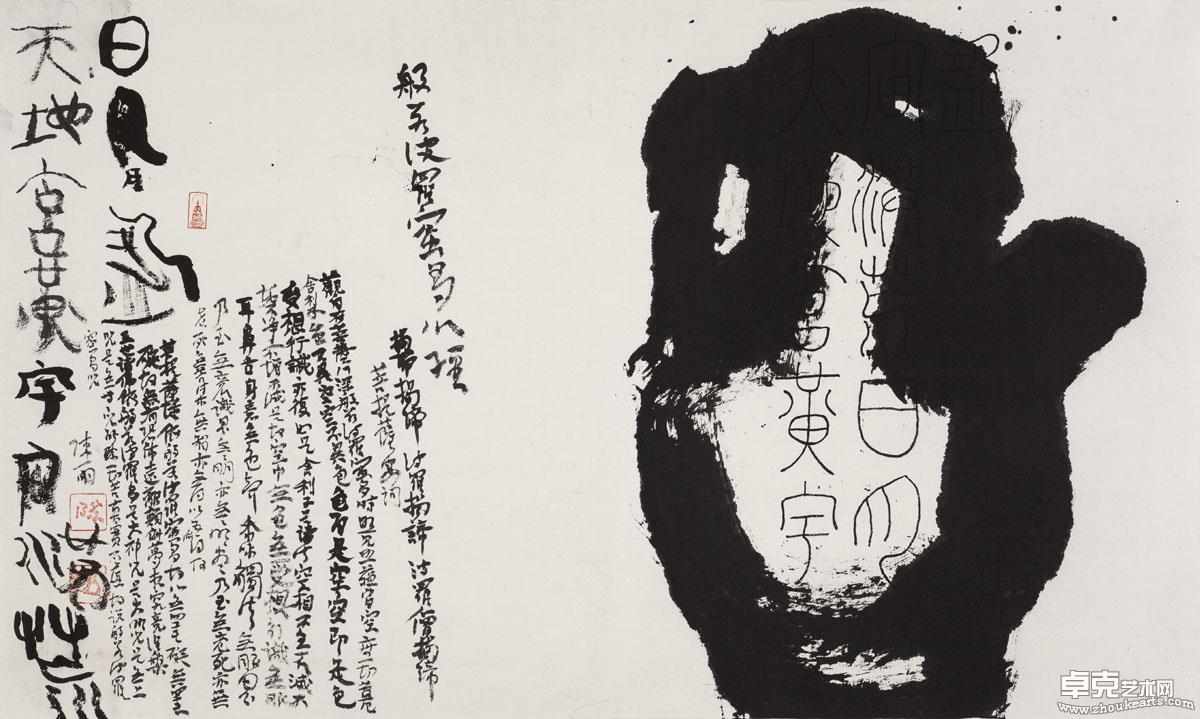 盈
宙洪荒日月
天地玄黄宇
般若波羅蜜多心經
揭諦揭諦 波羅揭諦 波羅僧揭諦
菩提薩婆訶
觀自在菩薩行深般若波羅蜜多時照見五蘊皆空度一切苦厄
舍利子色不異空空不異色色即是空空即是色
受想行識亦復如是舍利子是諸法空相不生不滅不
垢不淨不增不減是故空中無色無受想行識無眼
耳鼻舌身意無色聲香味觸法無眼界
乃至無意識界無無明亦無無明盡乃至無老死亦無
老死盡無苦集滅道無智亦無得以無所得故
菩提薩埵依般若波羅蜜多故心無罣礙無罣
礙故無有恐怖遠離顛倒夢想究竟涅槃
咒是無等等咒能除一切苦真實不虛故說般若波羅
蜜多咒
日月盈
天地玄黄宇宙洪荒
卓克艺术网
www.zhoukearts.com